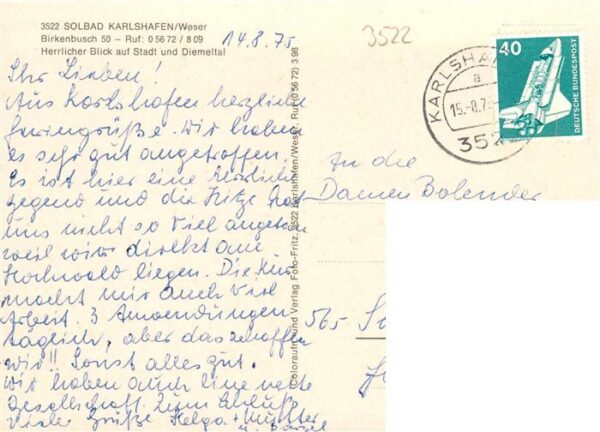 3522 SOLBAD KARLSHAFEN/Weser
Birkenbusch 50 – Ruf: 0 56 72 / 8 09
Herrlicher Blick auf Stadt und Diemeltal
14.8.75
3522
Ihr Lieben!
Aus Karlshafen herzliche
Feriengrüße. Wir haben
es sehr gut angetroffen.
Es ist hier eine herrliche
Gegend und die Hitze hat
uns nicht so viel angetan
weil wir direkt am
Hochwald liegen. Die Kur
macht mir auch viel
Arbeit. 3 Anwendungen
täglich, aber das schaffen
wir!! Sonst alles gut.
Wir haben auch eine nette
Gesellschaft. Zum Schluß
viele Grüße Helga + Mutter
Coloraufn. und Verlag Foto-Fritz, 3522 Karlshafen/Weser. Ruf (0 56 72) 3 98
KARLSHA
a
15.-8.75
352
40
DEUTSCHE BUNDESPOST
An die
Damen Bolender
565